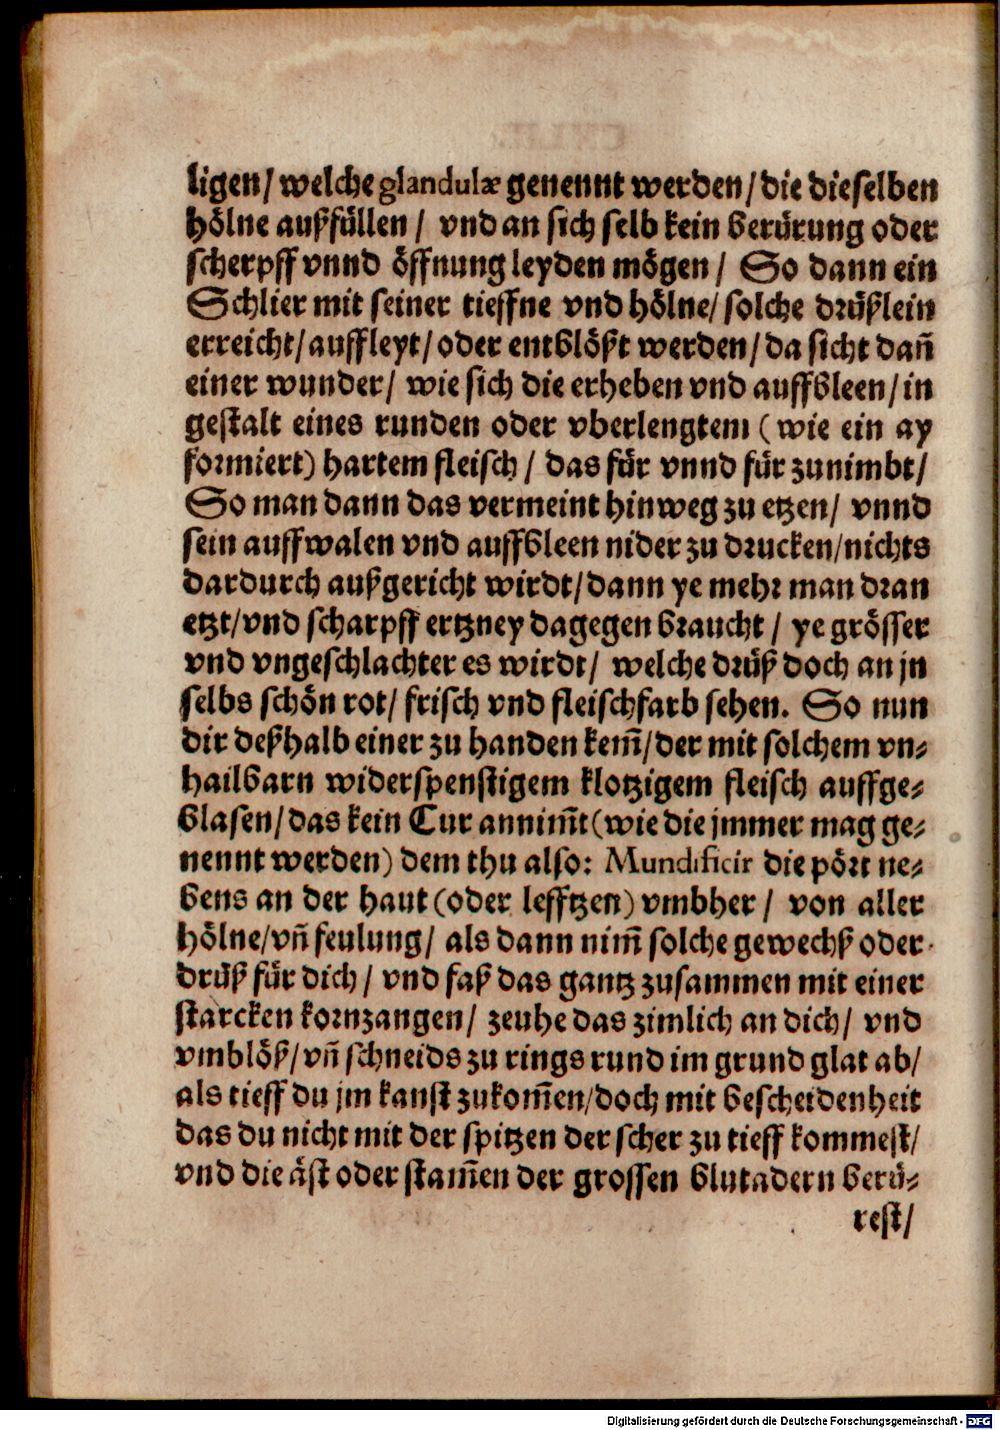 ligen/ welche glandulæ genennt werden/ die dieselben
hölne außfüllen / vnd an sich selb kein berürung oder
scherpff vnnd öffnung leyden mögen / So dann ein
Schlier mit seiner tieffne vnd hölne/ solche drüßlein
erreicht/ auffleyt/ oder entblößt werden/ da sicht dañ
einer wunder/ wie sich die erheben vnd auffbleen/ in
gestalt eines runden oder vberlengtem (wie ein ay
formiert) hartem fleisch / das für vnnd für zunimbt/
So man dann das vermeint hinweg zu etzen/ vnnd
sein auffwalen vnd auffbleen nider zu drucken/nichts
dardurch außgericht wirdt/ dann ye mehr man dran
etzt/vnd scharpff ertzney dagegen braucht / ye grösser
vnd vngeschlachter es wirdt/ welche drüß doch an jn
selbs schön rot/ frisch vnd fleischfarb sehen. So nun
dir deßhalb einer zu handen kem̃/der mit solchem vn⸗
hailbarn widerspenstigem klotzigem fleisch auffge⸗
blasen/das kein Cur annim̃t(wie die jmmer mag ge⸗
nennt werden) dem thu also: Mundificir die pört ne⸗
bens an der haut (oder lefftzen) vmbher / von aller
hölne/vñ feulung/ als dann nim̃ solche gewechß oder
drüß für dich / vnd faß das gantz zusammen mit einer
starcken kornzangen/ zeuhe das zimlich an dich/ vnd
vmblöß/vñ schneids zu rings rund im grund glat ab/
als tieff du jm kanst zukom̃en/doch mit bescheidenheit
das du nicht mit der spitzen der scher zu tieff kommest/
vnd die äst oder stam̃en der grossen blutadern berü⸗
rest/
Digitalisierung gefördert durch die Deutsche Forschungsgemeinschaft - DFG